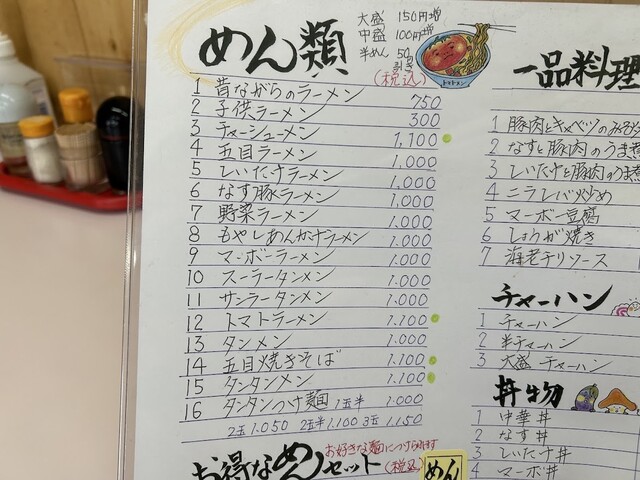 めん類
大盛 150円増
中盛 100円増
半めん 50引き
(税込)
トマトメン
1 昔ながらのラーメン 750
2 子供ラーメン 300
3 チャーシューメン 1,100
4 五目ラーメン 1,000
5 しいたけラーメン 1,000
6 なす豚ラーメン 1,000
7 野菜ラーメン 1,000
8 もやしあんかけラーメン 1,000
9 マーボーラーメン 1,000
10 スーラータンメン 1,000
11 サンラータンメン 1,000
12 トマトラーメン 1,100
13 タンメン 1,000
14 五目焼きそば 1,100
15 タンタンメン 1,100
16 タンタンつけ麺 1玉半 1,000
2玉 1,050 2玉半 1,100 3玉 1,150
お得なめんセット
お好きな麺につけられます
(税込)
めん
一品料理
1 豚肉とキャベツのみそ
2 なすと豚肉のうま煮
3 しいたけと豚肉のうま煮
4 ニラレバ炒め
5 マーボー豆腐
6 しょうが焼き
7 海老チリソース
チャーハン
1 チャーハン
2 半チャーハン
3 大盛チャーハン
丼物
1 中華丼
2 なす丼
3 しいたけ丼
4 マーボ丼